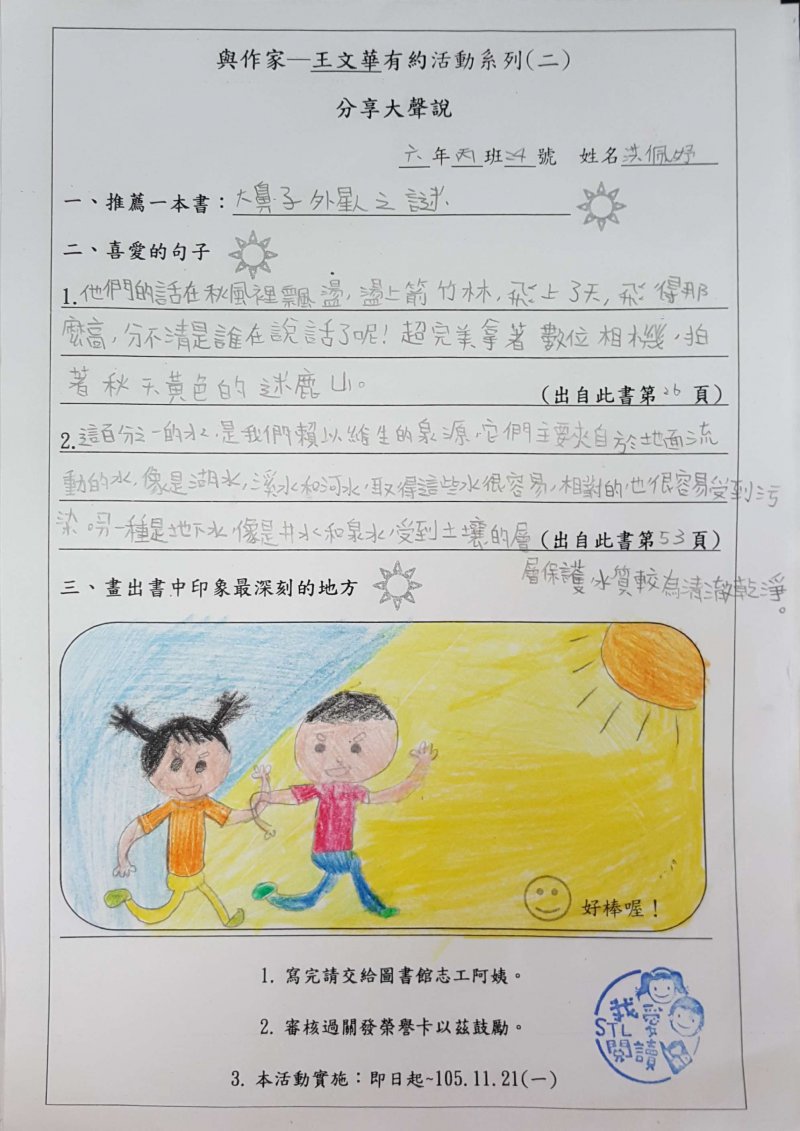 與作家—王文華有約活動系列(二)
分享大聲說
六年丙班24號 姓名洪佩妤
一、推薦一本書：大鼻子外星人之謎
二、喜愛的句子
1.他們的話在秋風裡飄盪，盪上箭竹林，飛上了天，飛得那
麼高，分不清是誰在說話了呢！超完美拿著數位相機，拍
著秋天黃色的迷鹿山。
(出自此書第26頁)
2.這百分之一的水，是我們賴以維生的泉源，它們主要來自於地面流
動的水，像是湖水，溪水和河水，取得這些水很容易，相對的也很容易受到污
染，另一種是地下水，像是井水和泉水，受到土壤的層
(出自此書第53頁)
層保護，水質較為清澈乾淨。
三、畫出書中印象最深刻的地方
好棒喔！
1. 寫完請交給圖書館志工阿姨。
2. 審核過關發榮譽卡以茲鼓勵。
3. 本活動實施：即日起~105.11.21(一)
我愛
STL
閱讀